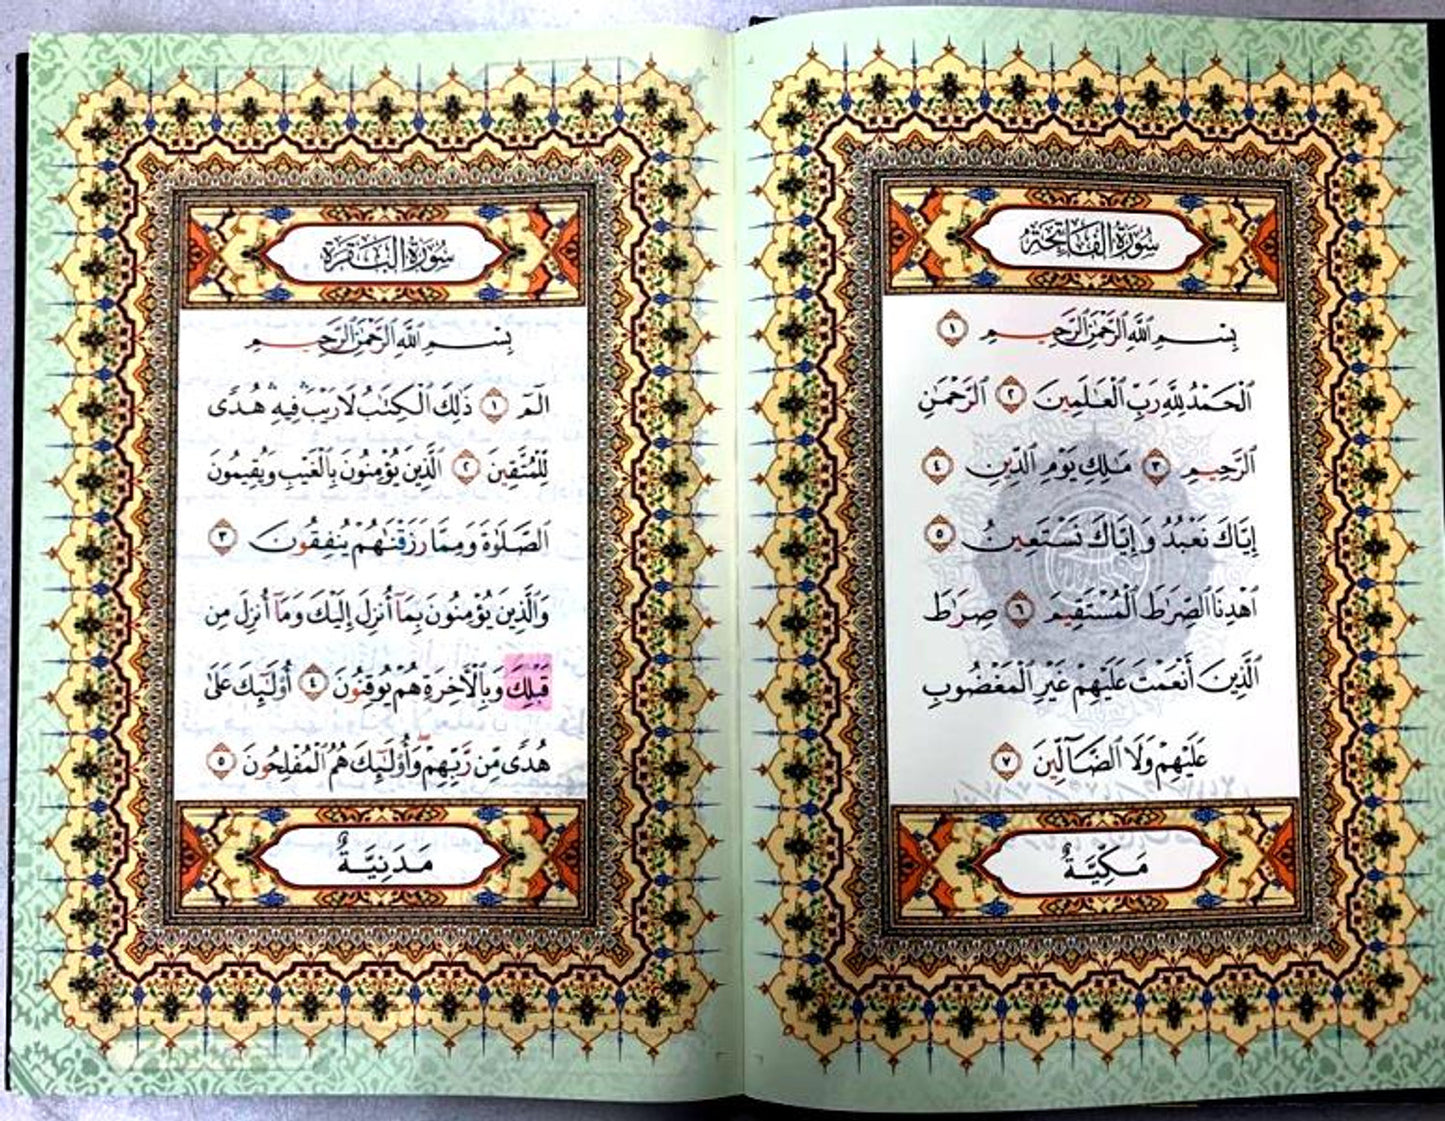 سُورَةُ الْفَاتِحَةِ
بِسْمِ ٱللَّهِ ٱلرَّحْمَٰنِ ٱلرَّحِيمِ ١
ٱلْحَمْدُ لِلَّهِ رَبِّ ٱلْعَٰلَمِينَ ٢ ٱلرَّحْمَٰنِ
ٱلرَّحِيمِ ٣ مَٰلِكِ يَوْمِ ٱلدِّينِ ٤
إِيَّاكَ نَعْبُدُ وَإِيَّاكَ نَسْتَعِينُ ٥
ٱهْدِنَا ٱلصِّرَٰطَ ٱلْمُسْتَقِيمَ ٦ صِرَٰطَ
ٱلَّذِينَ أَنْعَمْتَ عَلَيْهِمْ غَيْرِ ٱلْمَغْضُوبِ
عَلَيْهِمْ وَلَا ٱلضَّآلِّينَ ٧
مَكِّيَّةٌ
سُورَةُ الْبَقَرَةِ
بِسْمِ ٱللَّهِ ٱلرَّحْمَٰنِ ٱلرَّحِيمِ
الٓمٓ ١ ذَٰلِكَ ٱلْكِتَٰبُ لَا رَيْبَ ۛ فِيهِ ۛ هُدًى
لِّلْمُتَّقِينَ ٢ ٱلَّذِينَ يُؤْمِنُونَ بِٱلْغَيْبِ وَيُقِيمُونَ
ٱلصَّلَوٰةَ وَمِمَّا رَزَقْنَٰهُمْ يُنفِقُونَ ٣
وَٱلَّذِينَ يُؤْمِنُونَ بِمَآ أُنزِلَ إِلَيْكَ وَمَآ أُنزِلَ مِن
قَبْلِكَ وَبِٱلْأَخِرَةِ هُمْ يُوقِنُونَ ٤ أُو۟لَٰٓئِكَ عَلَىٰ
هُدًى مِّن رَّبِّهِمْ ۖ وَأُو۟لَٰٓئِكَ هُمُ ٱلْمُفْلِحُونَ ٥
مَدَنِيَّةٌ